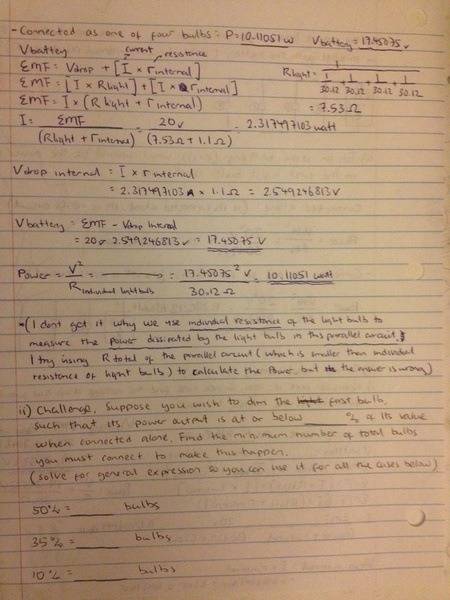 - Connected as one of four bulbs: P= 10.11051 w Vbattery = 17.45075 v
Vbattery current resistance
EMF = Vdrop + [I × rinternal]
EMF = [I × Rlight] + [I × rinternal]
EMF = I × (Rlight + rinternal)
Rlight = 1
1/30.12 + 1/30.12 + 1/30.12 + 1/30.12
= 7.53Ω
I = EMF/(Rlight + rinternal) = 20v/(7.53Ω + 1.1Ω) = 2.317497103 watt
Vdrop internal = I × rinternal
= 2.317497103 A × 1.1Ω = 2.549246813 v
Vbattery = EMF - Vdrop internal
= 20v - 2.549246813 v = 17.45075 V
Power = V²/R individual lightbulb = 17.45075² v/30.12 Ω = 10.11051 watt
*(I dont get it why we use individual resistance of the light bulb to
measure the power dissipated by the light bulb in this parallel circuit,
I try using R total of the parallel circuit (which is smaller than individual
resistance of light bulbs) to calculate the Power, but the answer is wrong)
ii) Challenge, suppose you wish to dim the first bulb,
such that its power output is at or below ____ % of its value
when connected alone. Find the minimum number of total bulbs
you must connect to make this happen.
(solve for general expression so you can use it for all the cases below)
50% = ____ bulbs
35% = ____ bulbs
10% = ____ bulbs